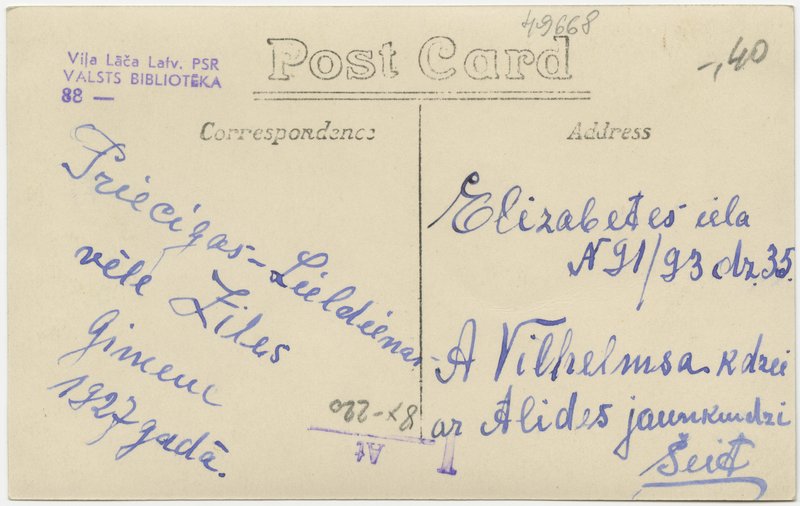 49668
-,40
Viļa Lāča Latv. PSR
VALSTS BIBLIOTĒKA
88 —
Post Card
Correspondence
Address
Priecigas-Lieldienas
vēle Ziles
Gimene
1927 gadā.
Elizabetes iela
N 91/93 dz. 35.
A Vilhelmsa kdzei
ar Alides jaunkundzi
Šeit
8x-220
At